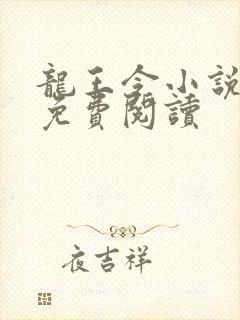 龍王令小說
免費閱讀
夜吉祥